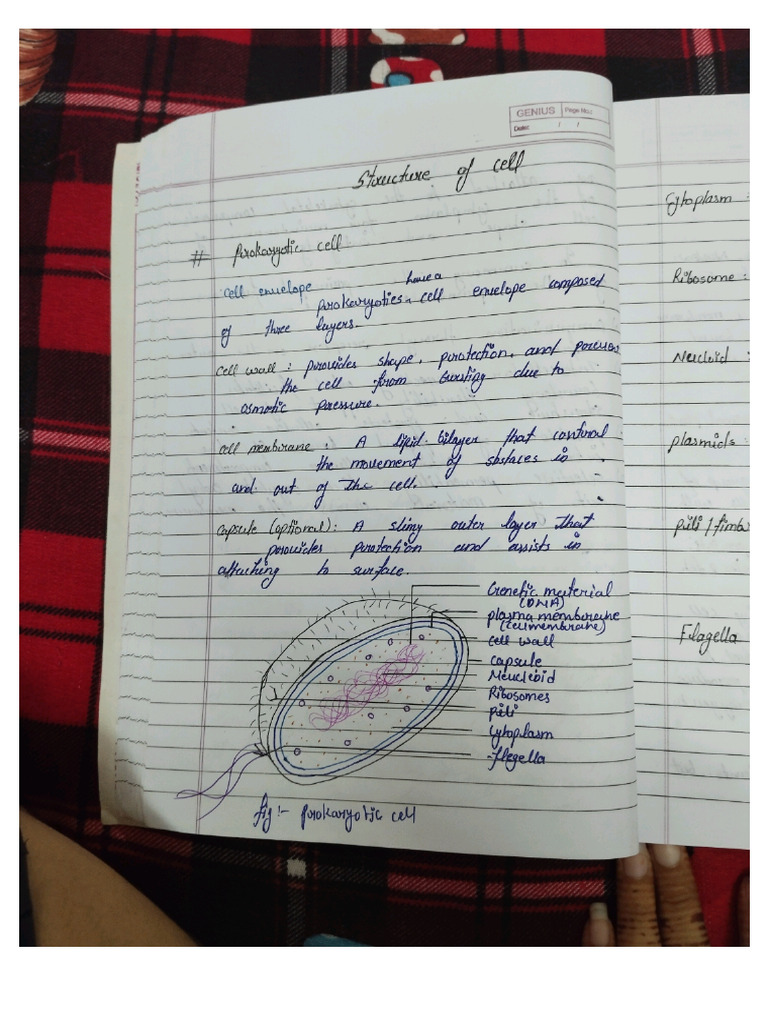 GENIUS
Page No.:
Date: / /
Structure of cell
# Prokaryotic cell
cell envelope
have a
prokaryoties cell envelope composed
of three layers.
cell wall : provides shape, protection, and
the cell from bursting due to
osmotic pressure.
cell membrane : A lipid-bilayer that control
the movement of sbstaces in
and out of the cell.
capsule (optional): A slimy outer layer that
provides protection and assists in
attaching to surface.
Genetic material
(DNA)
plasma membrane
(cell membrane)
cell wall
capsule
Neucleoid
Ribosomes
pili
cytoplasm
flegella
fig :- prokaryotic cell
Cytoplasm :
Ribosome :
Necloid :
plasmids :
pili / fimb
Flagella